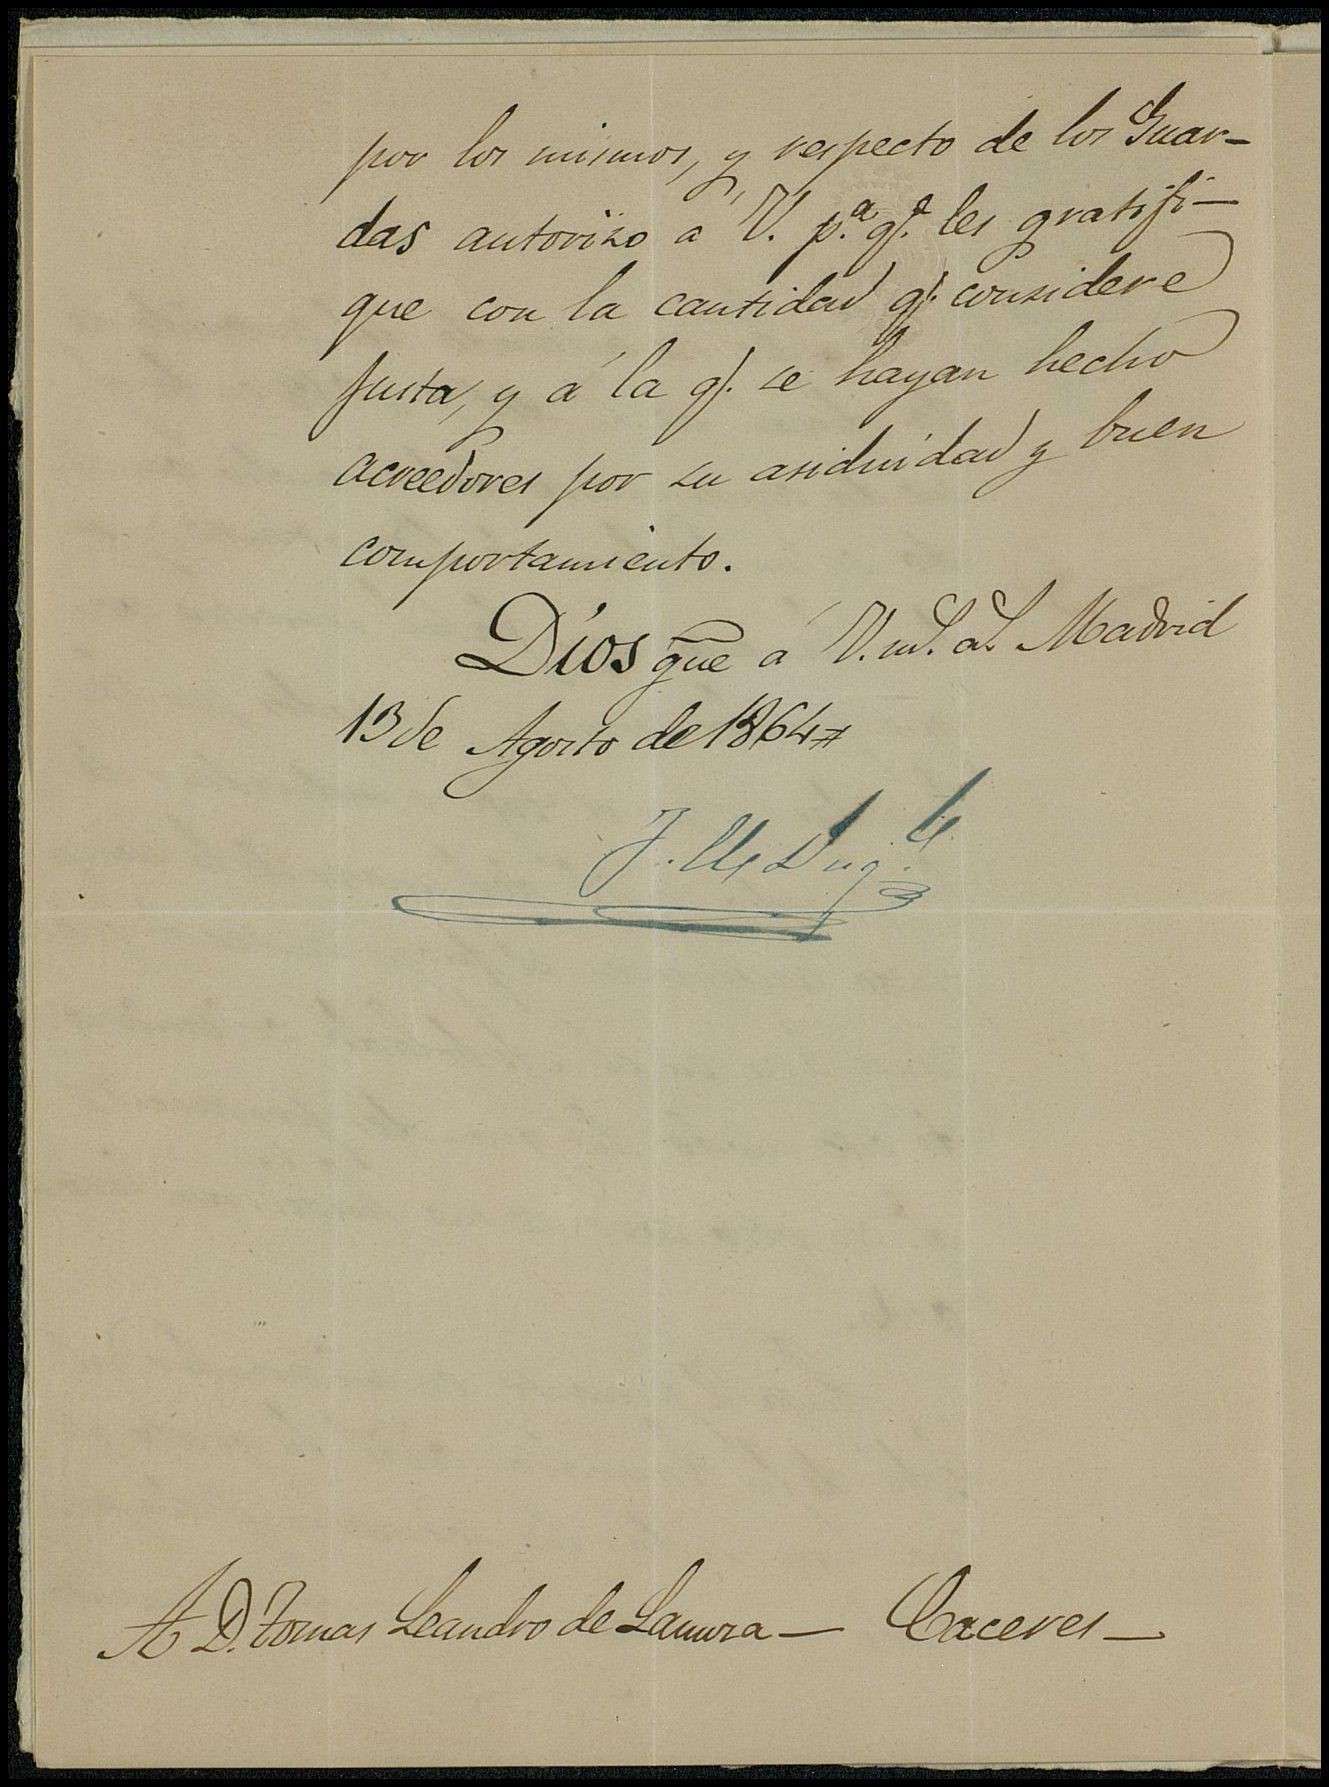 por los mismos, y respecto de los Guar-
das autorizo a V. p.ª q.e les gratifi-
que con la cantidad q. considere
justa, y á la q. se hayan hecho
acreedores por su asiduidad y buen
comportamiento.
Dios gue á V. m.s a.s Madrid
13 de Agosto de 1864
A D. Tomas Leandro de Lamura — Caceres —